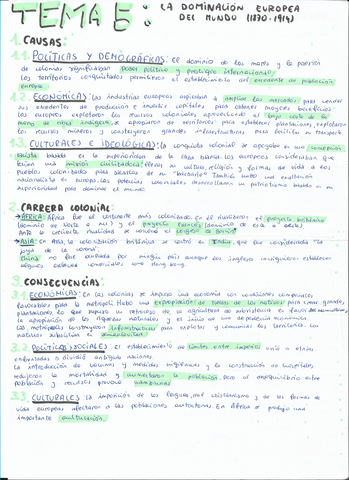 TEMA 5: LA DOMINACIÓN EUROPEA
DEL MUNDO (1870-1914)
1. CAUSAS:
1.1. POLÍTICAS Y DEMOGRÁFICAS: El dominio de los mares y la posesión
de colonias significaban poder político y prestigio internacional
los territorios conquistados permitieron el establecimiento del excedente de población
europea.
ECONÓMICAS: Las industrias europeas aspiraban a ampliar los mercados para vender
sus excedentes de producción e invertir capitales para obtener mayores beneficios
los europeos explotaron los recursos coloniales, aprovechando el bajo coste de la
mano de obra indígena, se apropiaron de territorios para establecer plantaciones, explotaron
los recursos mineros y construyeron grandes infraestructuras para facilitar su transporte.
1.3. CULTURALES E IDEOLÓGICAS: la conquista colonial se apoyaba en una concepción
basada en la superioridad de la raza blanca. los europeos consideraban que
tenían una misión civilizadora: llevar su cultura, religión y formas de vida a los
pueblos colonizados para sacarlos de su "También hubo una exaltación
nacionalista en europa, las potencias coloniales desarrollaron un patriotismo basado en su
superioridad para dominar el mundo.
2. CARRERA COLONIAL:
ÁFRICA: África fue el continente más colonizado. en él rivalizaron el proyecto británico
(dominio de Norte a sur) y el proyecto francés (dominio de este a oeste)
Ante la creciente rivalidad se convocó el Congreso de Berlín
ASIA: En Asia, la colonización británica se centró en India, que fue considerada "La
joya de la corona".
China no fue ocupada por ningún país aunque los ingleses consiguieron establecer
algunos enlaces comerciales como Hong Kong.
3. CONSECUENCIAS:
ECONÓMICAS: En las colonias se impuso una economía con condiciones comerciales
favorables para la metrópoli. Hubo una expropiación de tierras de los nativos para crear grandes
plantaciones, lo que supuso un retroceso de la agricultura de subsistencia en favor del
la apropiación de las riquezas naturales y el inicio de una dependencia económica.
Las metrópolis construyeron infraestructuras para explotar y comunicar los territorios. Los
nativos
3.2. POLÍTICAS y SOCIALES: el establecimiento de límites entre imperios unió a etnias
enfrentadas o dividió antiguas naciones
La introducción de vacunas y medidas higiénicas y la construcción de hospitales
redujeron la mortalidad y aumentaron la población, pero el desequilibrio entre
población y recursos provocó hambrunas
3.3 CULTURALES: La imposición de las lenguas, del cristianismo y de las formas de
vida europeas afectaron a las poblaciones autóctonas. En África se produjo una
importante aculturación.